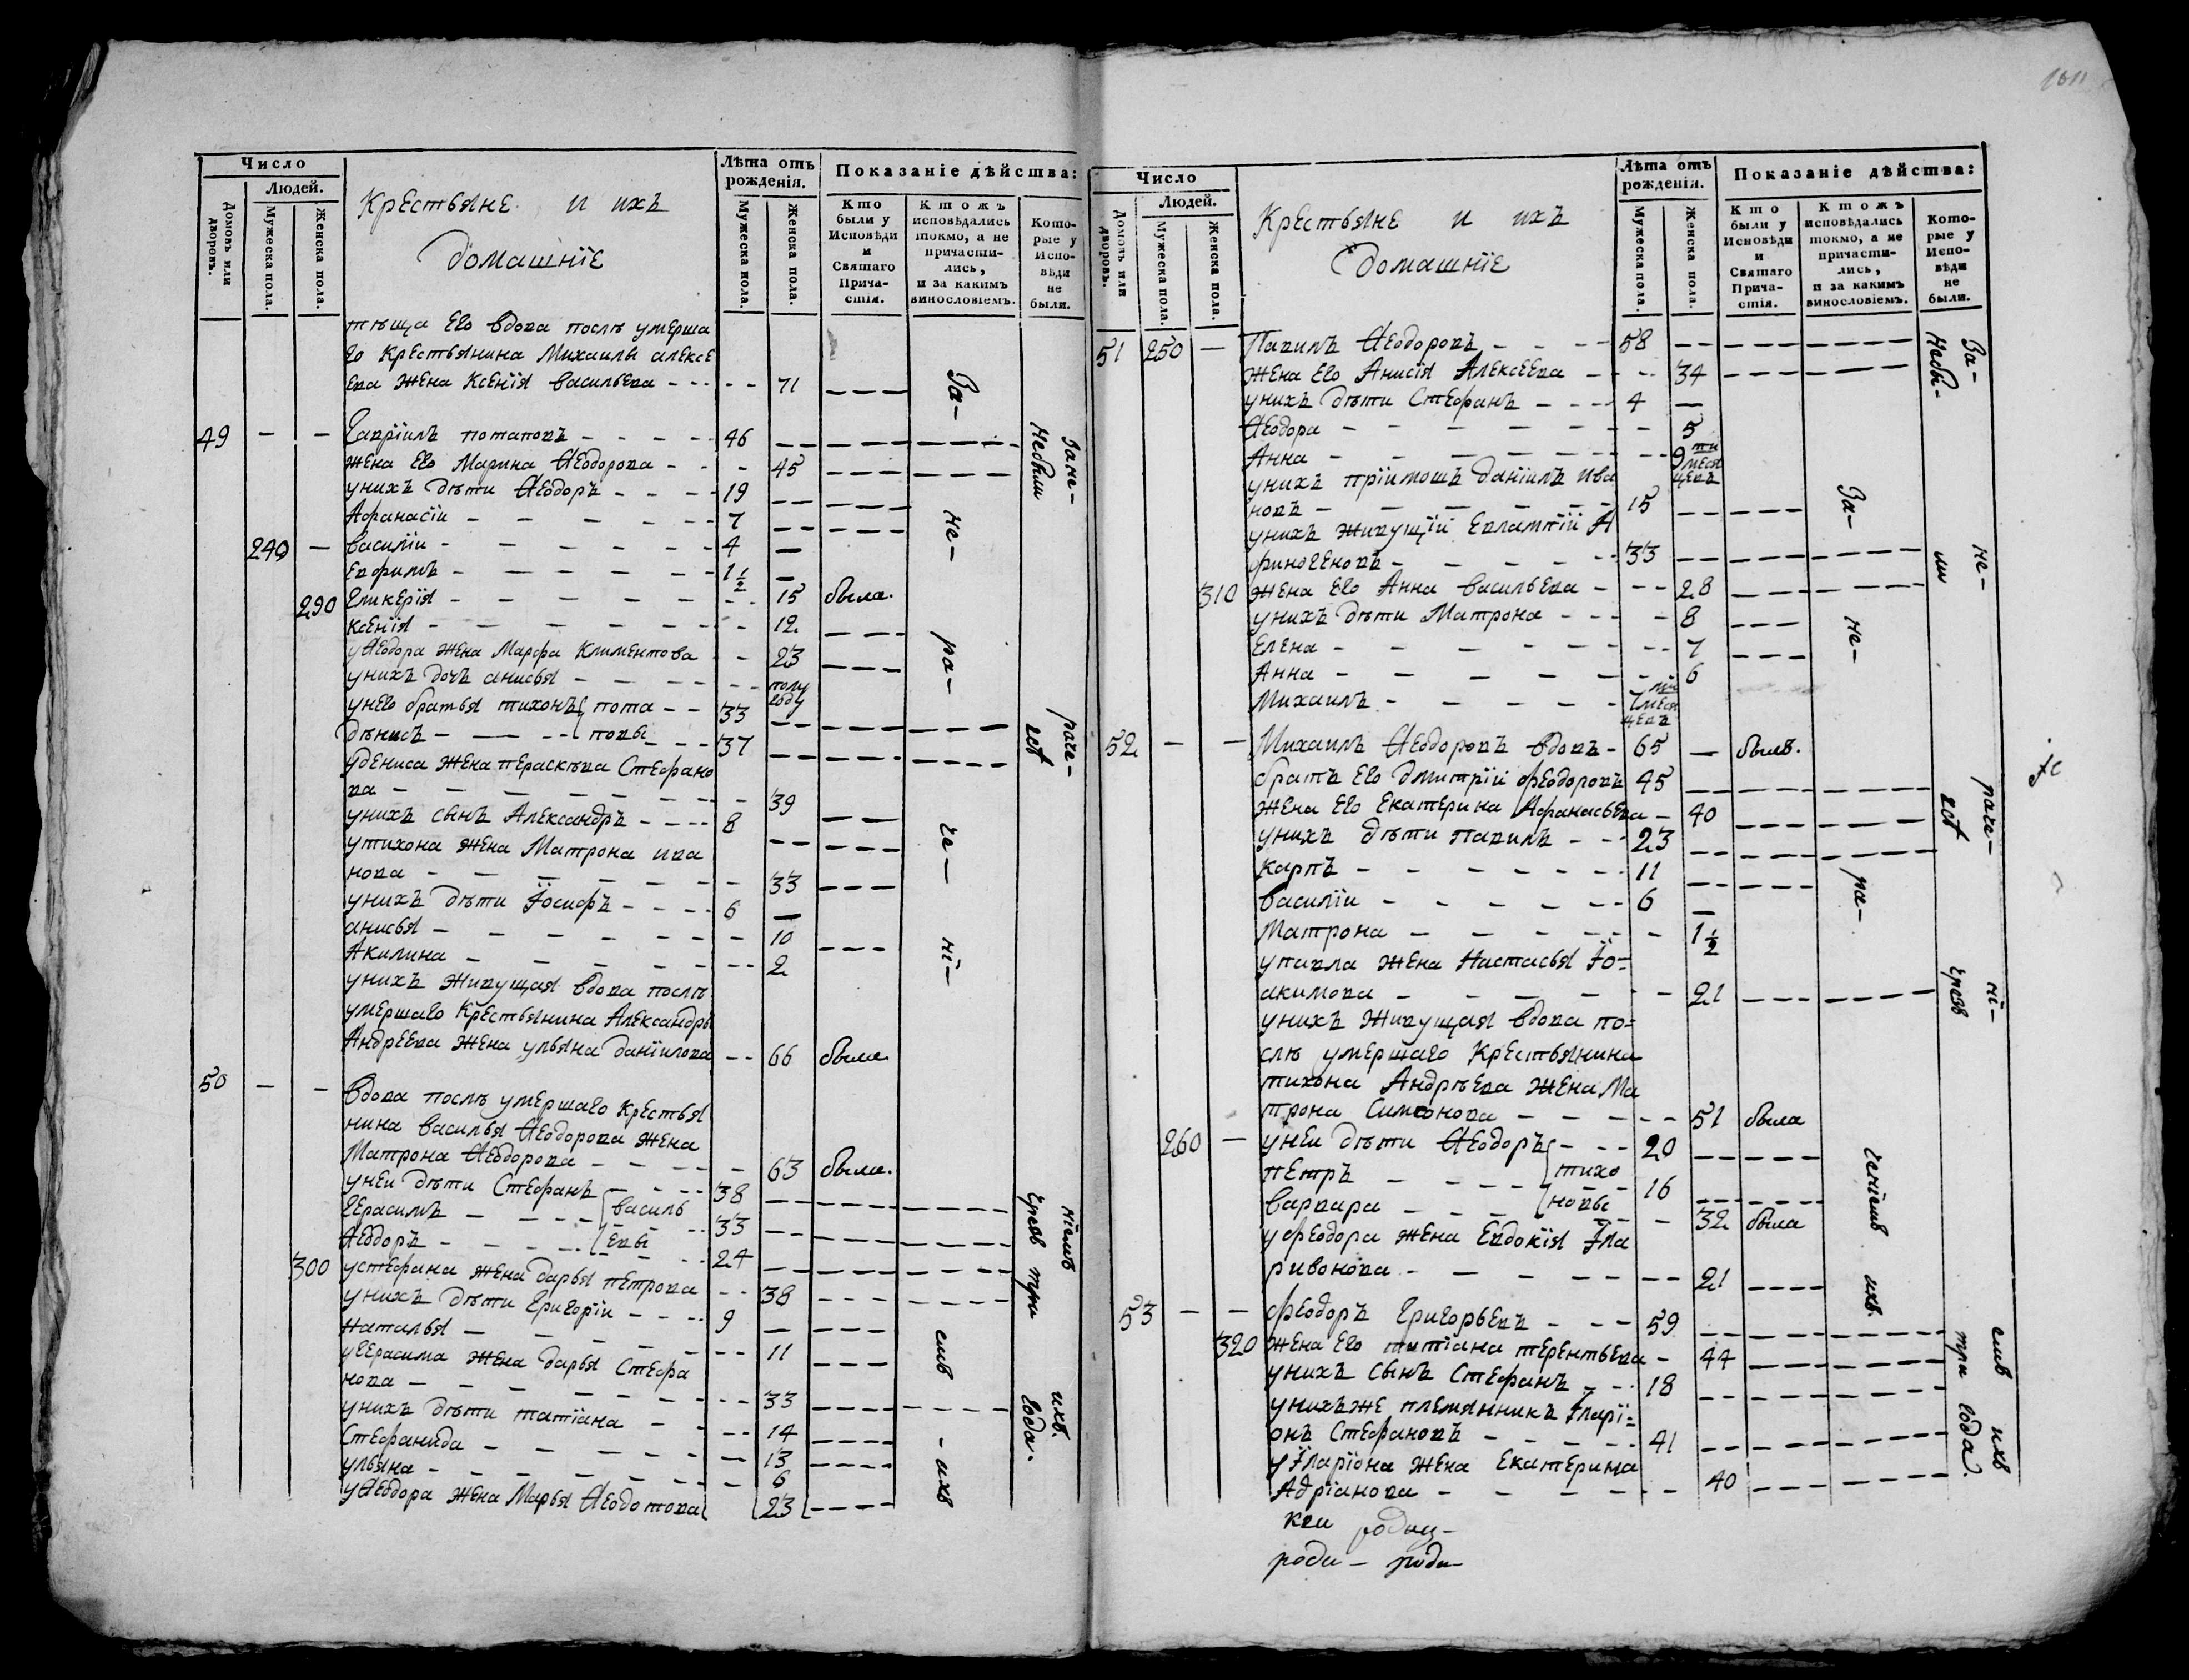 1011
Число
Людей.
Домовъ или дворовъ.
Мужеска пола.
Женска пола.
Крестьяне и ихъ
домашніе
Лѣта отъ рожденія.
Мужеска пола.
Женска пола.
Показаніе дѣйства:
Кто были у Исповѣди и Святаго Прича-стія.
Ктожъ исповѣдались токмо, а не причасти-лись, и за какимъ винословіемъ.
Кото-рые у Испо-вѣди не были.
тѣща его вдова послѣ умерша
го крестьянина Михаилы алексе
ева жена Ксенія васильева - - - - - 71 - - -
49 - - Гавріилъ потаповъ - - - - 46 - - -
жена его Марина Ѳеодорова - - - 45 - - -
унихъ дѣти Ѳеодоръ - - - - 19 - - -
Афанасіи - - - - - - 7 - - -
240 - василіи - - - - - - 4 -
Евфимъ - - - - - - 1 1/2 -
290 Гликерія - - - - - - - - 15 была.
ксенія - - - - - - - 12 - - -
уѲеодора жена Марфа Климентова - - 23 - - -
унихъ дочь анисья - - - - - - - полу году
унего братья тихонъ пота - - 33 - - -
дѣнисъ - - - - - повы - - - 37 - - -
удениса жена пераскѣва Стефано
ва - - - - - - - - 39 - - -
унихъ сынъ Александръ - - - - 8 - - -
утихона жена Матрона ива
нова - - - - - - - - 33 - - -
унихъ дѣти Іосифъ - - - - 6 -
анисья - - - - - - - 10 - - -
Акилина - - - - - - - - 2
унихъ живущая вдова послѣ
умершаго крестьянина Александры
Андреева жена ульяна даніилова - - 66 была.
50 - - Вдова послѣ умершаго крестья
нина василья Ѳеодорова жена
Матрона Ѳеодорова - - - - - 63 была.
уней дѣти Стефанъ - - - - 38 - - -
Герасимъ - - - - василь 33 - - -
Ѳеодоръ - - - - - евы - - - 24 - - -
300 устефана жена дарья петрова - - 38 - - -
унихъ дѣти Григоріи - - - - 9 - - -
Наталья - - - - - - - - 11 - - -
угерасима жена дарья Стефа
нова - - - - - - - - 33 - - -
унихъ дѣти татіана - - - - 14 - - -
Стефанида - - - - - - - 13 - - -
ульяна - - - - - - - - 6
уѲеодора жена Марья Ѳеодотова 23 - - -
За - не - ра - че - ні - емъ - ихъ
Зане - раче - ніемъ ихъ.
Небыли
три года.
Число
Людей.
Домовъ или дворовъ.
Мужеска пола.
Женска пола.
Крестьяне и ихъ
домашніе
Лѣта отъ рожденія.
Мужеска пола.
Женска пола.
Показаніе дѣйства:
Кто были у Исповѣди и Святаго Прича-стія.
Ктожъ исповѣдались токмо, а не причасти-лись, и за какимъ винословіемъ.
Кото-рые у Испо-вѣди не были.
51 250 - Павилъ Ѳеодоровъ - - - - 58 - - -
жена его Анисія Алексеева - - - 34 - - -
унихъ дѣти Стефанъ - - - - 4 -
Ѳеодора - - - - - - - 5
Анна - - - - - - - - 9ти месяцевъ
унихъ пріимошъ даніилъ ива
новъ - - - - - - - 15 - - -
унихъ живущіи Евлампіи А
финогеновъ - - - - - - - 33 - - -
310 жена его Анна васильева - - - 28 - - -
унихъ дѣти Матрона - - - - 8 - - -
Елена - - - - - - - - 7 - - -
Анна - - - - - - - - 6
Михаилъ - - - - - - 7ми месяцевъ
52 - - Михаилъ Ѳеодоровъ вдовъ - 65 - былъ.
братъ его дмитріи феодоровъ 45 - - -
жена его екатерина Афанасьева - 40 - - -
унихъ дѣти павилъ - - - 23 - - -
карпъ - - - - - - - 11 - - -
василіи - - - - - - - 6 -
Матрона - - - - - - 1 1/2
упавла жена Настасья Іо=
акимова - - - - - - 21 - - -
унихъ живущая вдова по=
слѣ умершаго крестьянина
тихона Андрѣева жена Ма
трона Симеонова - - - - - 51 была
260 - уней дѣти Ѳеодоръ - - - 20 - - -
петръ - - - - - тихо - 16 - - -
варвара - - - - новы - - 32 была
уфеодора жена Евдокія Іла
ривонова - - - - - - - 21 - - -
53 - - феодоръ Григорьевъ - - - 59 - - -
320 жена его татіана терентьева - 44 - - -
унихъ сынъ Стефанъ - - - 18 - - -
унихъже племянникъ Іларі=
онъ Стефановъ - - - - - 41 - - -
уІларіона жена Екатерина
Адріанова - - - - - - 40 - - -
За - не - ра - ченіемъ ихъ.
За - не - раче - ні - емъ ихъ
Небы - ли
три года.
роди -